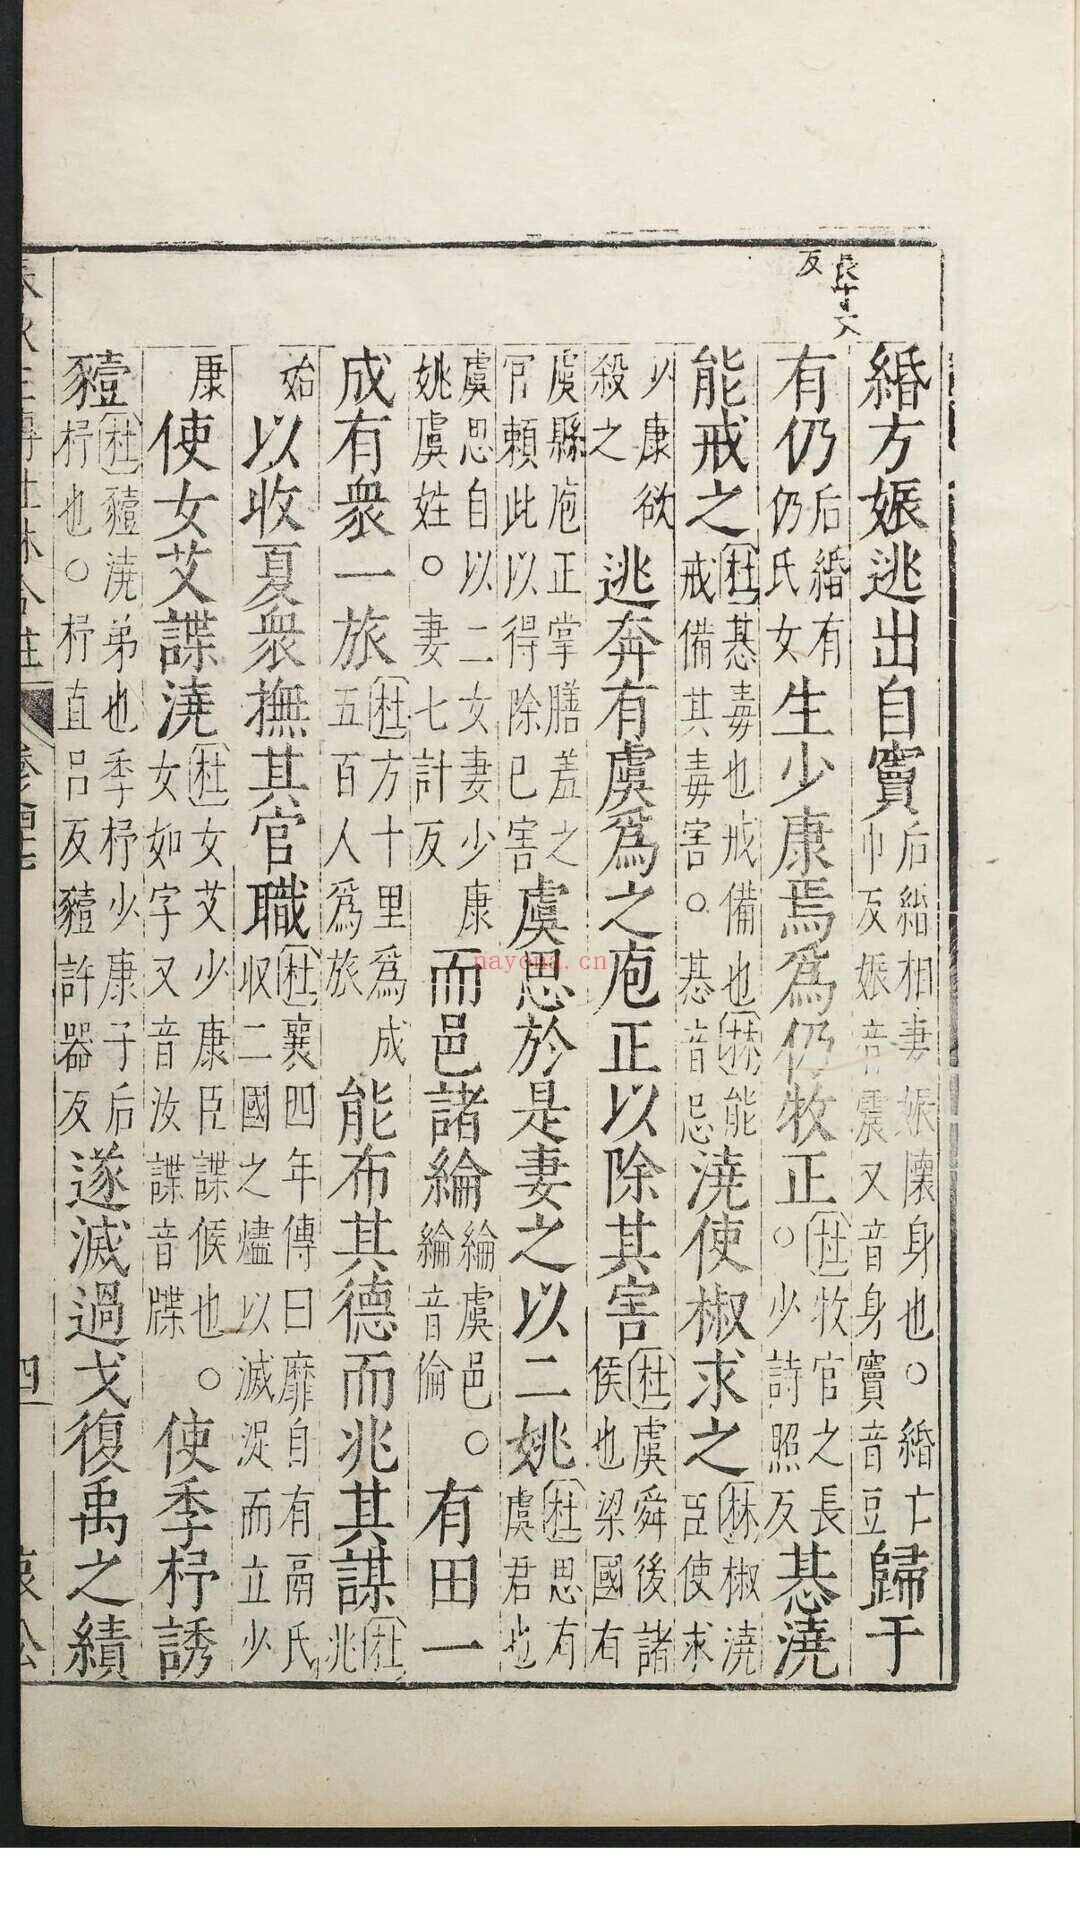 長丁丈
反
緡方娠逃出自竇后緡相妻娠懷身也○緡亡巾反娠音震又音身竇音豆歸于
有仍后緡有仍氏女生少康焉爲仍牧正杜牧官之長○少詩照反惎澆
能戒之杜惎毒也戒備也林能戒備其毒害○惎音忌澆使椒求之林椒澆臣使求
少康欲殺之逃奔有虞爲之庖正以除其害杜虞舜後諸侯也梁國有
虞縣庖正掌膳羞之官賴此以得除已害虞思於是妻之以二姚杜思有虞君也
虞思自以二女妻少康姚虞姓○妻七計反而邑諸綸綸虞邑○綸音倫有田一
成有衆一旅杜方十里爲成五百人爲旅能布其德而兆其謀杜兆
始以收夏衆撫其官職杜襄四年傳曰靡自有鬲氏收二國之燼以滅浞而立少
康使女艾諜澆杜女艾少康臣諜候也○女如字又音汝諜音牒使季杼誘
豷杜豷澆弟也季杼少康子后杼也○杼直呂反豷許器反遂滅過戈復禹之績
四
哀公
nayona.cn